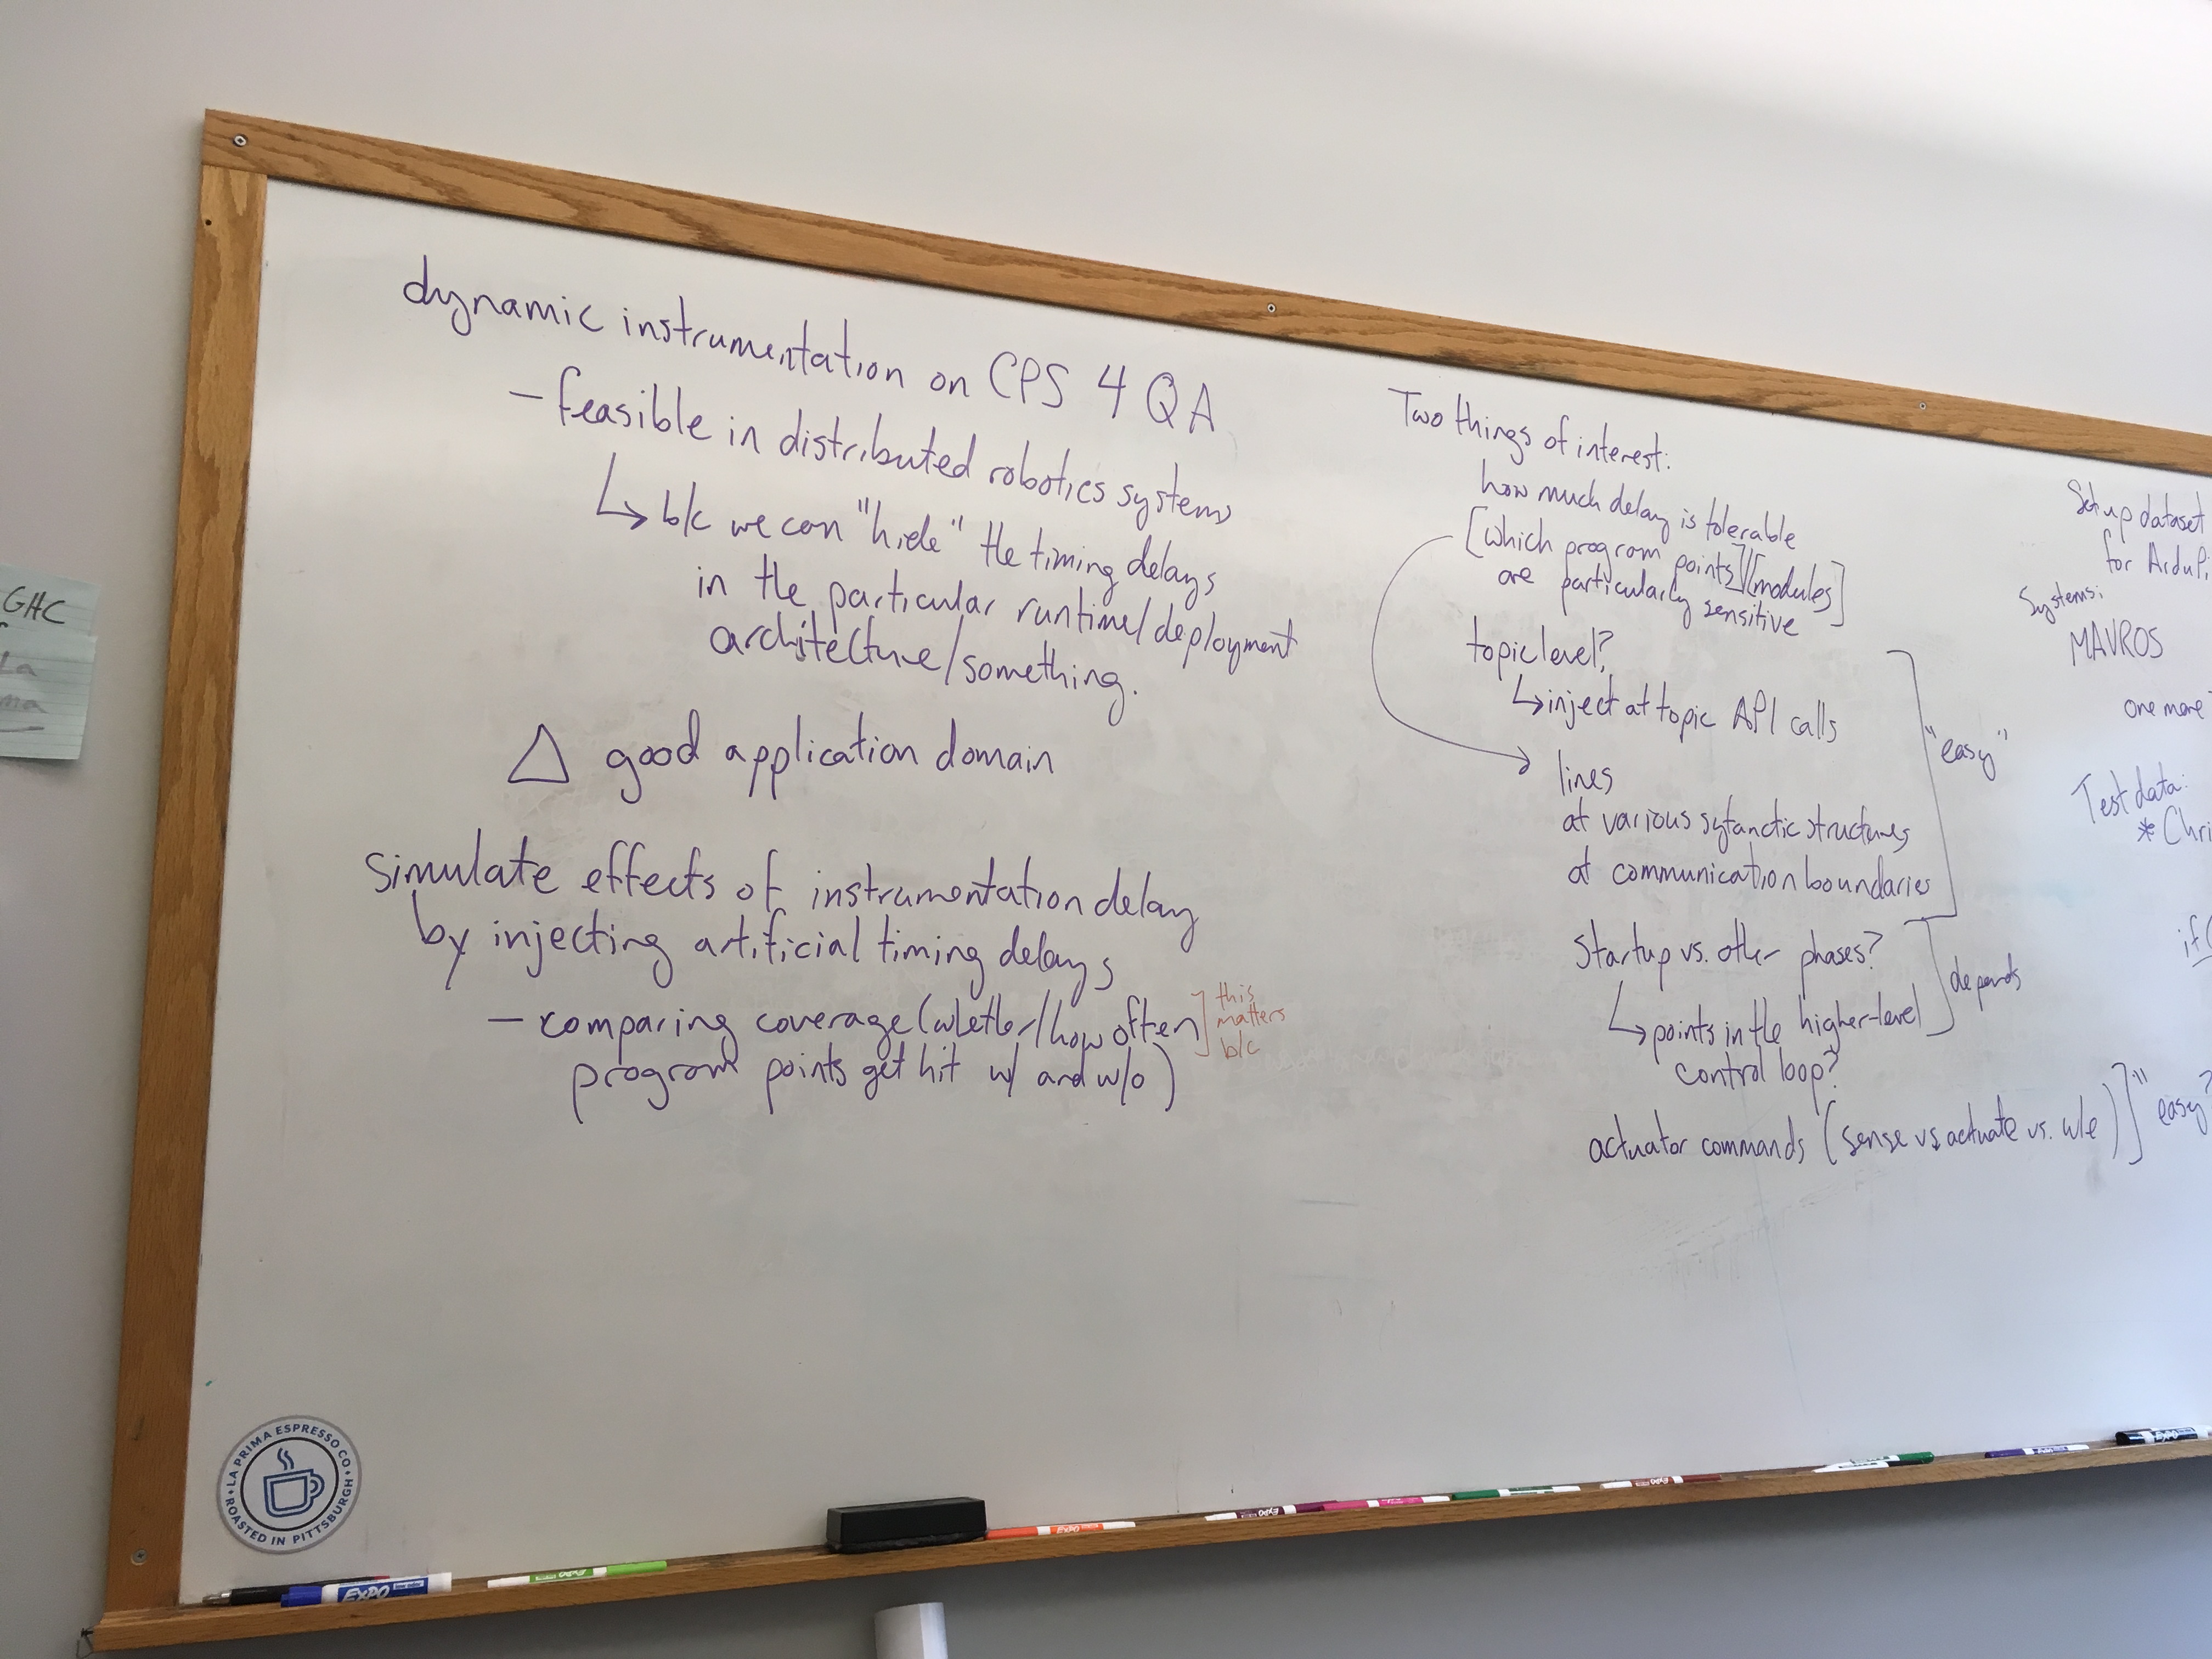 dynamic instrumentation on CPS 4 QA
- feasible in distributed robotics systems
↳ b/c we can "hide" the timing delays
in the particular runtime/deployment
architecture/something.
△ good application domain
simulate effects of instrumentation delay
by injecting artificial timing delays
- comparing coverage (whether/how often
program points get hit w/ and w/o)
this
matters
b/c
Two things of interest:
how much delay is tolerable
[which program points] [modules]
are particularly sensitive
topic level?
↳ inject at topic API calls
lines
at various sytanctic structures
at communication boundaries
"easy"
startup vs. other phases?
↳ points in the higher-level
control loop?
depends
actuator commands (sense vs actuate vs. w/e)
"easy?
Set up dataset
for ArduPi
Systems:
MAVROS
one more
Test data:
* Chri
if (
GHC
La
ma
LA PRIMA ESPRESSO CO
ROASTED IN PITTSBURGH
EXPO
EXPO
EXPO